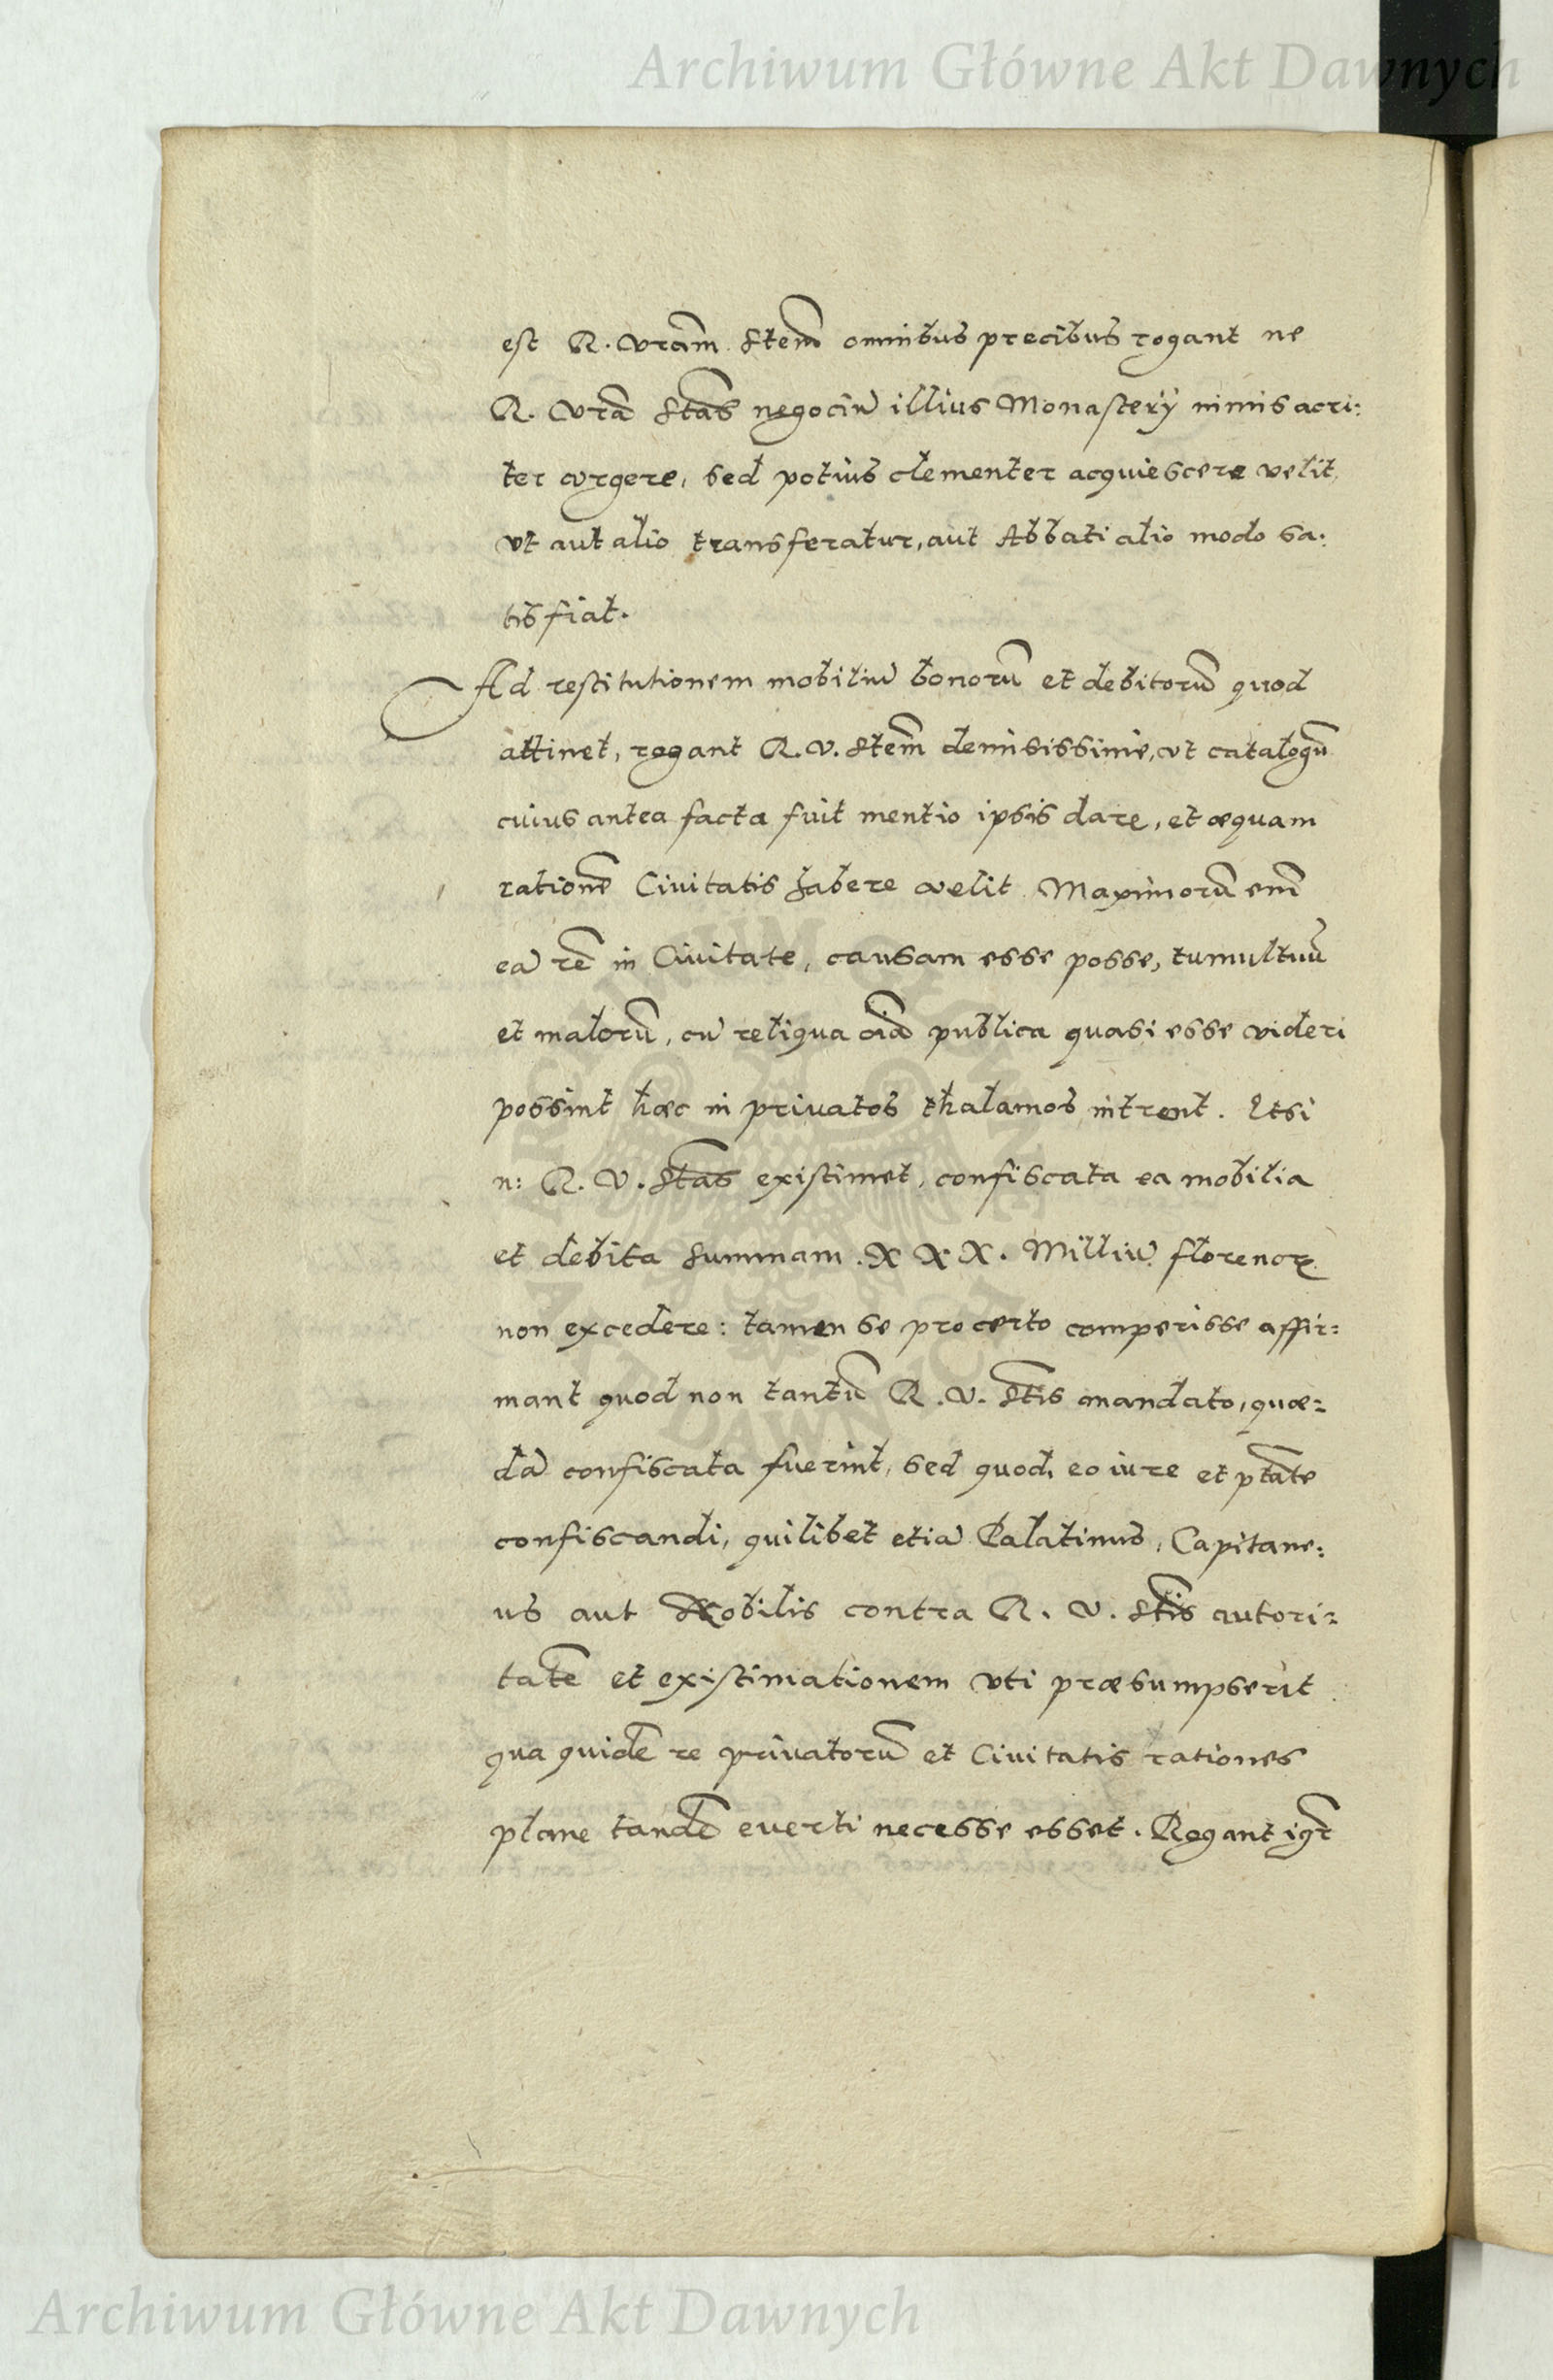 Archiwum Główne Akt Dawnych
est R. vram̄ Stem̄ omnibus precibus rogant ne
R. Vrā Stas̄ negociū illius Monasterÿ nimis acri:
ter vrgere, sed potius clementer acquiescere velit,
vt aut alio transferatur, aut Abbati alio modo sa:
tisfiat.
Ad restitutionem mobiliū bonorū et debitorū quod
attinet, rogant R. V. Stem̄ demisissime, vt catalogū
cuius antea facta fuit mentio ipsis dare, et æquam
rationē Civitatis habere velit. Maximorū enī
eā rē in Civitate, causam esse posse, tumultuū
et malorū, cū reliqua oīa publica quasi esse videri
possint hæc in privatos thalamos intrent. Etsi
n: R. V. Stas̄ existimet, confiscata ea mobilia
et debita summam . X X X . Milliū florenorꝝ
non excedere: tamen se pro certo comperisse affir:
mant quod non tantū R. V. Stis̄ mandato, quæ:
dā confiscata fuerint, sed quod, eo iure et ptāte
confiscandi, quilibet etiā Palatinus, Capitane:
us aut Nobilis contra R. V. Stis̄ autori:
tatē et existimationem vti præsumpserit
qua quidē re privatorū et Civitatis rationes
plane tandē everti necesse esset. Rogant igr̄
Archiwum Główne Akt Dawnych